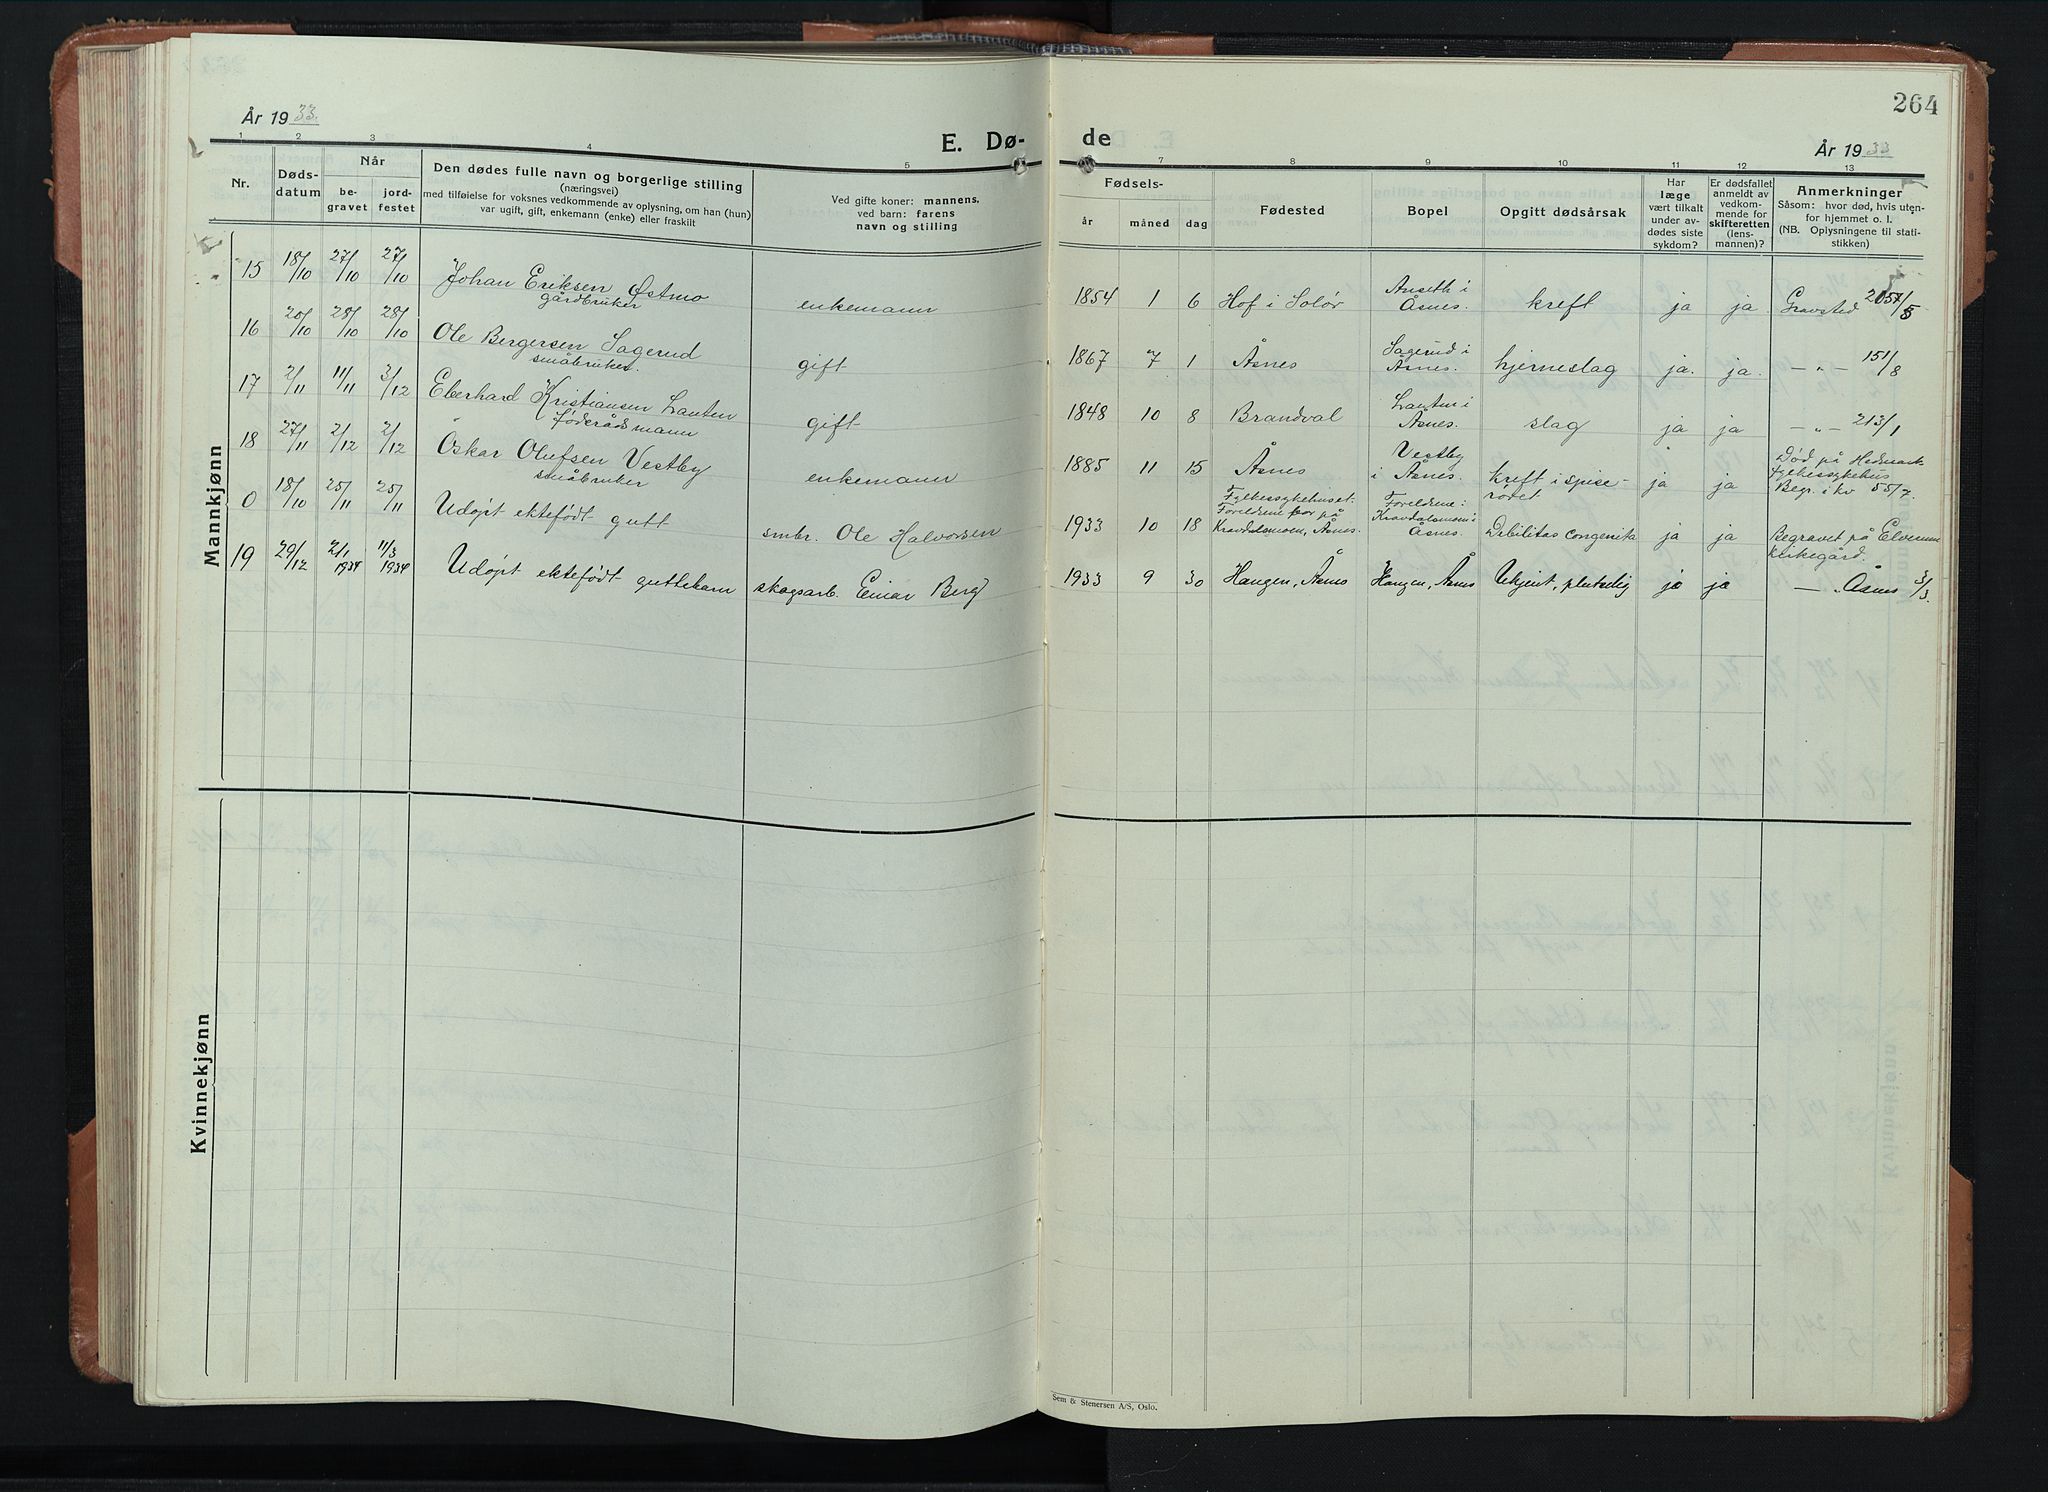 År 1933.
E. Dø-
1 2 3 4 5
Nr.
Døds-
datum
Når
be-
gravet
jord-
festet
Den dødes fulle navn og borgerlige stilling
(næringsvei)
med tilføielse for voksnes vedkommende av oplysning, om han (hun)
var ugift, gift, enkemann (enke) eller fraskilt
Ved gifte koner: mannens,
ved barn: farens
navn og stilling
Mannkjønn
15 18/10 27/10 27/10 Johan Eriksen Østmo enkemann
gårdbruker
16 20/10 28/10 28/10 Ole Bergersen Sagerud gift
småbruker.
17 2/11 11/11 3/12 Eberhard Kristiansen Lauten gift
føderådsmann
18 27/11 2/12 2/12 Oskar Olufsen Vestby enkemann
småbruker
0 18/10 25/11 25/11 Udøpt ektefødt gutt smbr. Ole Halvorsen
19 29/12 2/1 1934 11/3 1934 Udøpt ektefødt guttebarn skogsarb. Einar Berg
Kvinnekjønn
264
de
År 1933
7 8 9 10 11 12 13
Fødsels-
år måned dag
Fødested
Bopel
Opgitt dødsårsak
Har
læge
vært tilkalt
under av-
dødes siste
sykdom?
Er dødsfallet
anmeldt av
vedkom-
mende for
skifteretten
(lens-
mannen)?
Anmerkninger
Såsom: hvor død, hvis uten-
for hjemmet o. l.
(NB. Oplysningene til stati-
stikken)
1854 1 6 Hof i Solør Anseth i
Åsnes. kreft ja ja Gravsted
1867 7 1 Åsnes Sagerud i
Åsnes. hjerneslag ja. ja. — „ — 151/8
1848 10 8 Brandval Lauten i
Åsnes. slag ja ja — „ — 213/1
1885 11 15 Åsnes Vestby
i Åsnes. kreft i spise-
røret ja ja Død på Hedmark
fylkessykehus
Begr. i kv 55/7.
1933 10 18 Fylkessykehuset.
Foreldrene bor på
Kravdalsmoen, Åsnes. Foreldrene:
Kravdalsmoen i
Åsnes. Debilitas congenita ja ja Begravet på Elverum
kirkegård.
1933 9 30 Haugen, Åsnes Haugen, Åsnes Ukjent, plutselig ja ja — „ Åsnes 3/3.
Sem & Stenersen A/S, Oslo.